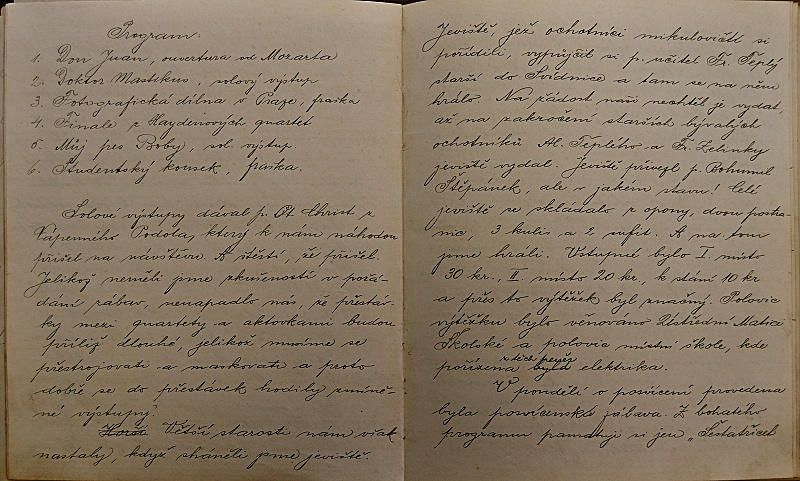 Program:
1. Don Juan, ouvertura od Mozarta
2. Doktor Mastikus, solový výstup
3. Fotografická dílna v Praze, fraška
4. Finale z Haydenových quartet
5. Můj pes Boby, sol. výstup.
6. Studentský kousek, fraška.
Solové výstupy dával p. Ot. Christ z
Vápenného Podola, který k nám náhodou
přišel na návštěvu. A štěstí, že přišel.
Jelikož neměli jme zkušeností v pořá-
dání zábav, nenapadlo nás, že přestáv-
ky mezi quartety a aktovkami budou
příliž dlouhé, jelikož musíme se
přestrojovati a maskovati a proto
dobře se do přestávek hodily zmíně-
né výstupy.
Horší Větší starosti nám však
nastaly, když sháněli jsme jeviště.
Jeviště, jež ochotníci mikulovičtí si
pořídili, vypůjčil si p. učitel Fr. Teplý
starší do Svídnice a tam se na něm
hrálo. Na žádost naši nechtěl je vydat,
až na zakročení starších bývalých
ochotníků Al. Teplého a Fr. Zelinky
jeviště vydal. Jeviště přivezl p. Bohumil
Štěpánek, ale v jakém stavu! Celé
jeviště se skládalo z opony, dvou postra-
nic, 3 kulis a 2 sufit. A na tom
jsme hráli. Vstupné bylo I. místo
30 kr., II. místo 20 kr, k stání 10 kr
a přes to výtěžek byl značný. Polovic
výtěžku bylo věnováno Ústřední Matici
Školské a polovic místní škole, kde
z těch peněz
pořízena byla elektrika.
V pondělí o posvícení provedena
byla posvícenská zábava. Z bohatého
programu pamatuji si jen „Šestatřicet